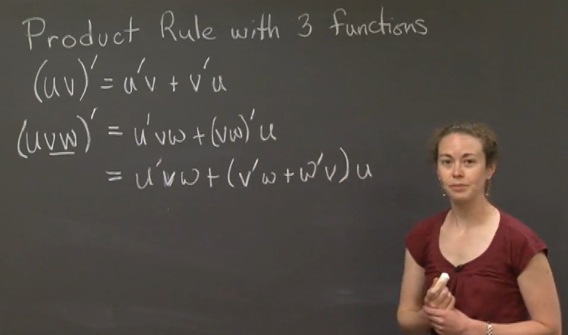 Product Rule with 3 functions
(uv)' = u'v + v'u
(uvw)' = u'vw + (vw)'u
= u'vw + (v'w + w'v)u